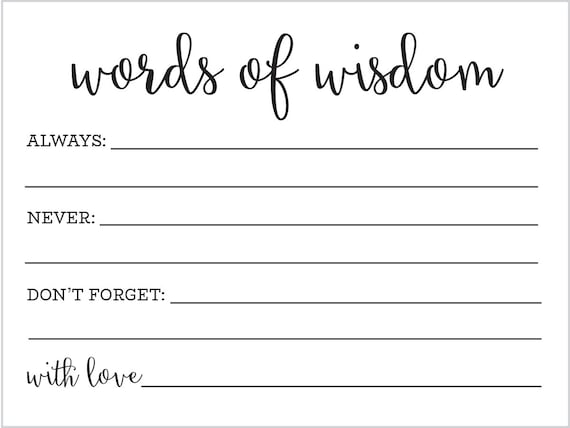 words of wisdom
ALWAYS:
NEVER:
DON'T FORGET:
with love